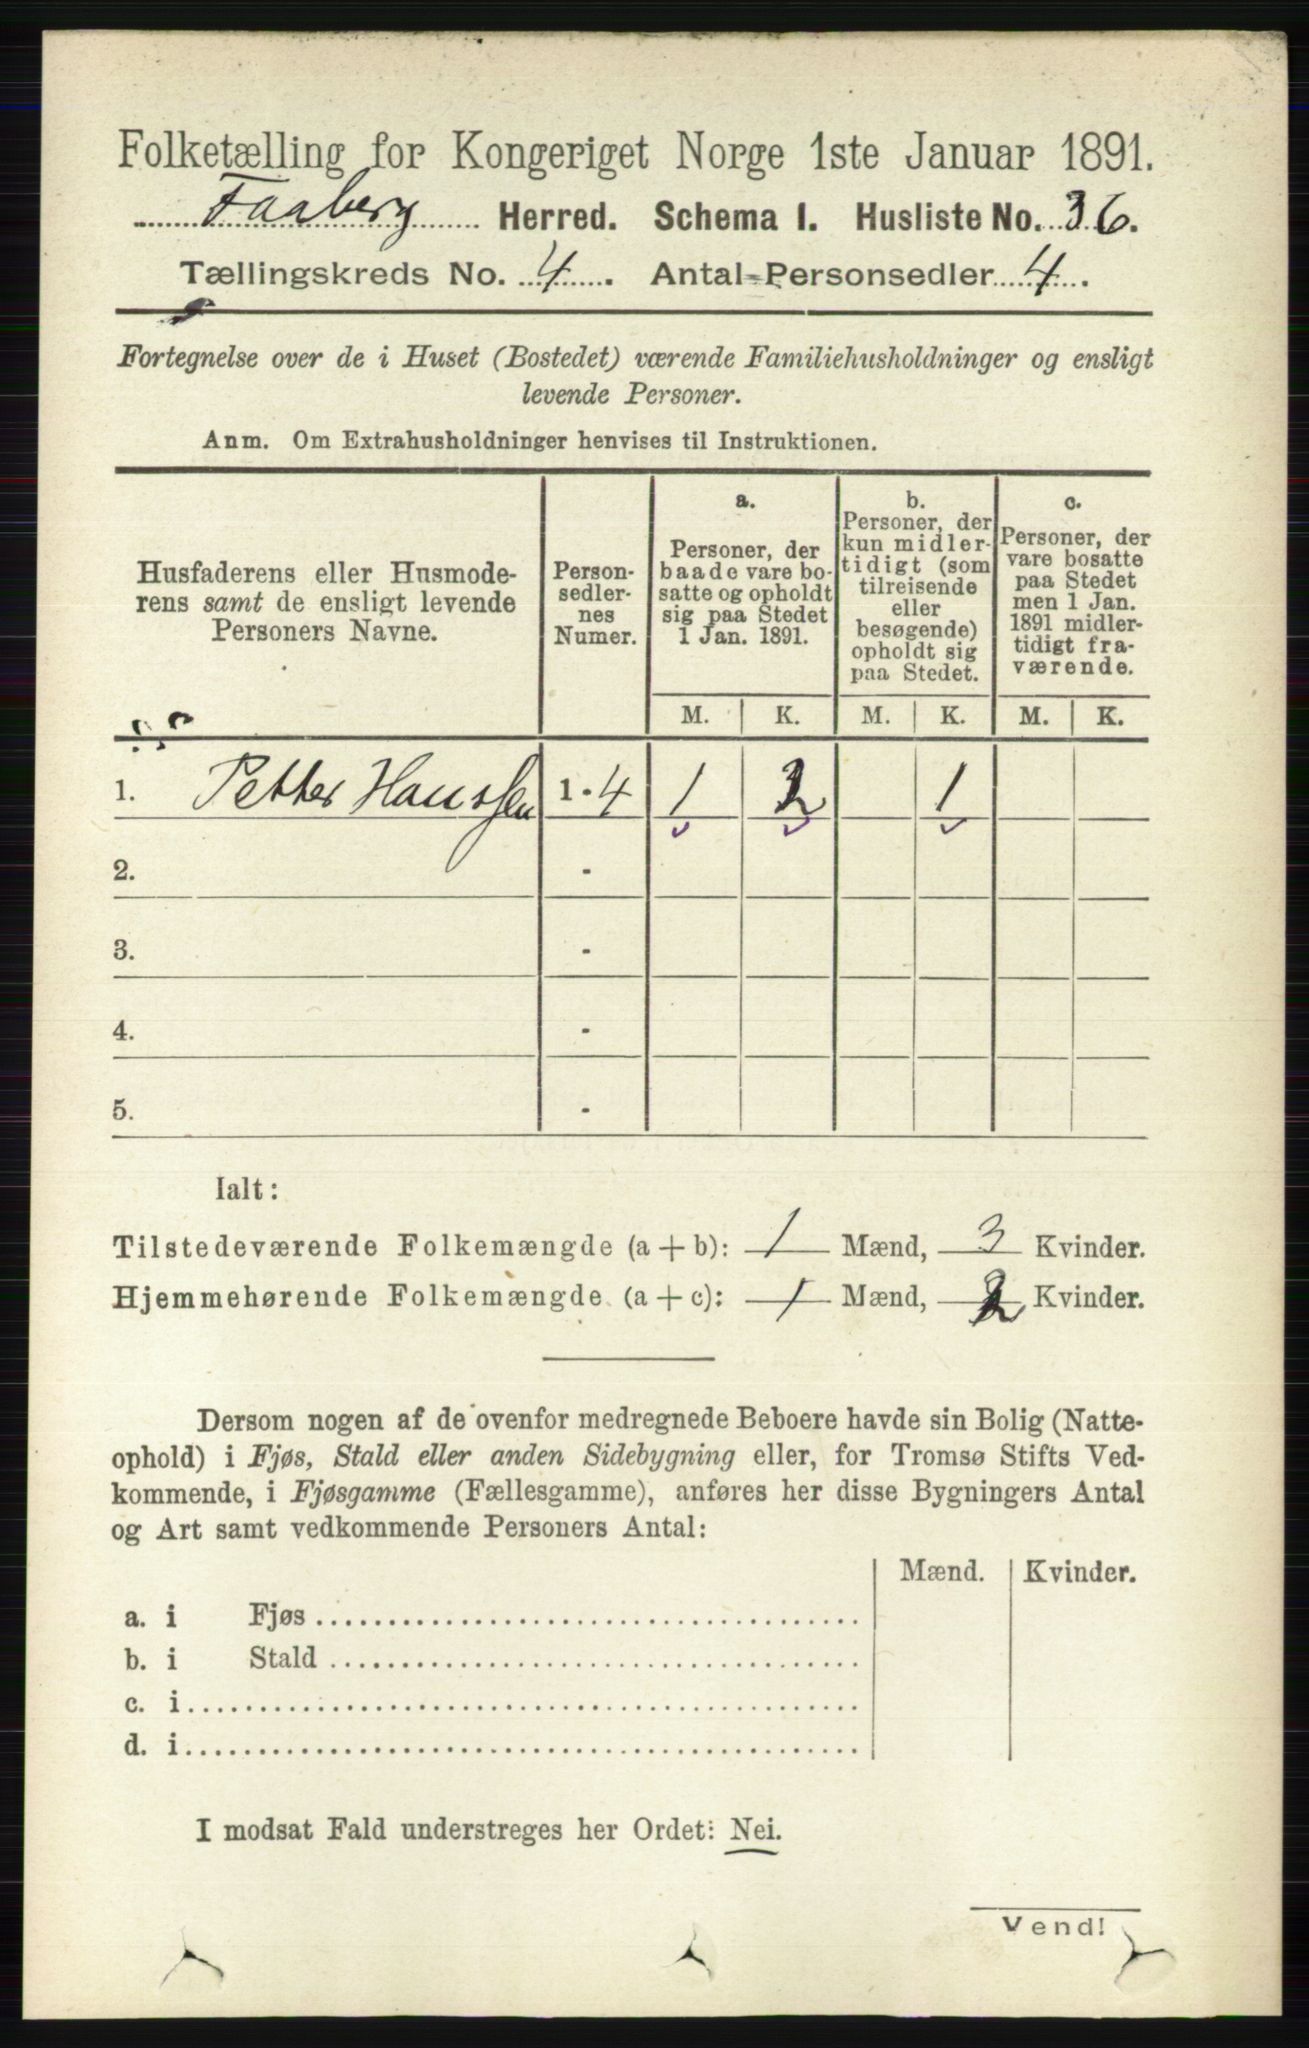 Folketælling for Kongeriget Norge 1ste Januar 1891.
Faaberg Herred. Schema I. Husliste No. 36.
Tællingskreds No. 4. Antal Personsedler 4.
Fortegnelse over de i Huset (Bostedet) værende Familiehusholdninger og ensligt
levende Personer.
Anm. Om Extrahusholdninger henvises til Instruktionen.
Husfaderens eller Husmode-
rens samt de ensligt levende
Personers Navne.
Person-
sedler-
nes
Numer.
a.
Personer, der
baade vare bo-
satte og opholdt
sig paa Stedet
1 Jan. 1891.
b.
Personer, der
kun midler-
tidigt (som
tilreisende
eller
besøgende)
opholdt sig
paa Stedet.
c.
Personer, der
vare bosatte
paa Stedet
men 1 Jan.
1891 midler-
tidigt fra-
værende.
M. K. M. K. M. K.
1. Petter Hanssen 1 - 4 1 2 1
2. -
3. -
4. -
5. -
Ialt:
Tilstedeværende Folkemængde (a + b): 1 Mænd, 3 Kvinder.
Hjemmehørende Folkemængde (a + c): 1 Mænd, 2 Kvinder.
Dersom nogen af de ovenfor medregnede Beboere havde sin Bolig (Natte-
ophold) i Fjøs, Stald eller anden Sidebygning eller, for Tromsø Stifts Ved-
kommende, i Fjøsgamme (Fællesgamme), anføres her disse Bygningers Antal
og Art samt vedkommende Personers Antal:
Mænd. Kvinder.
a. i Fjøs
b. i Stald
c. i
d. i
I modsat Fald understreges her Ordet: Nei.
Vend!